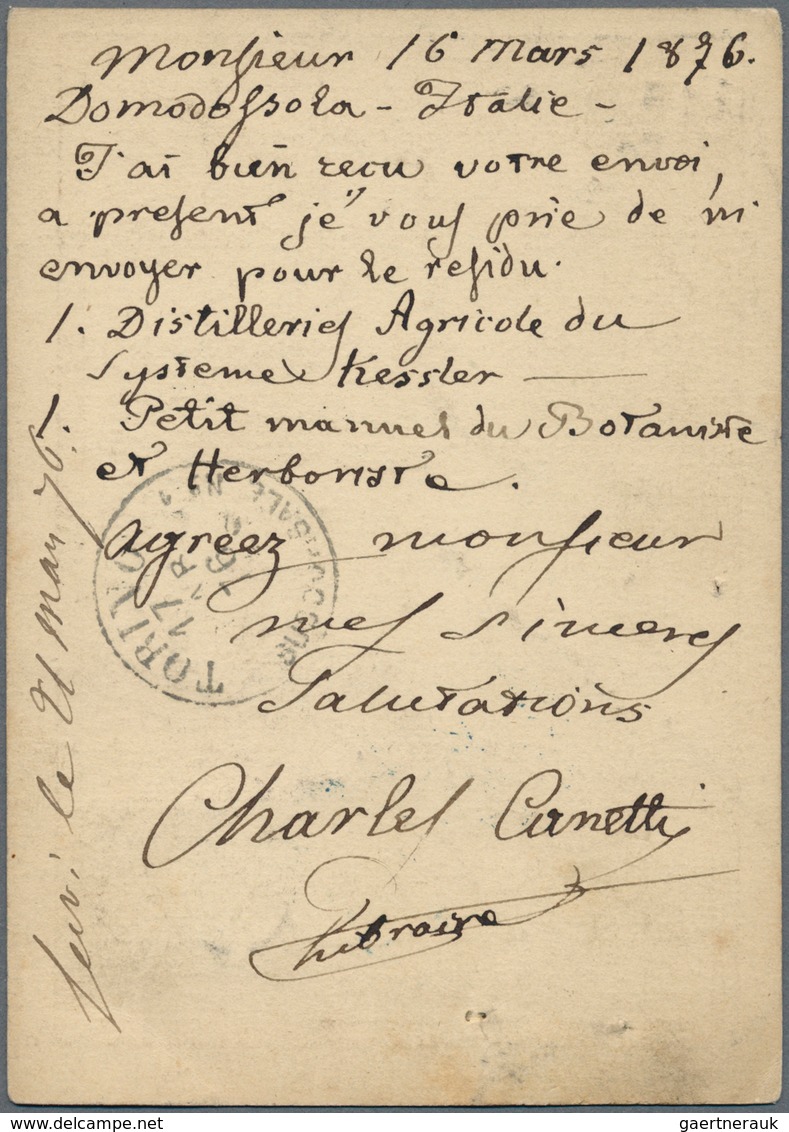 Monsieur 16 Mars 1876.
Domodossola - Italie -
J'ai bien recu votre envoi,
a present je vous prie de m'
envoyer pour le residu.
1. Distilleries Agricole du
Systeme Kessler —
1. Petit manuel du Botaniste
et Herboriste.
Agreez monsieur
mes sinceres
Salutations
Charles Canetti
Libraire
le 21 mars 76.
TORINO
17
16
gaertnerauk